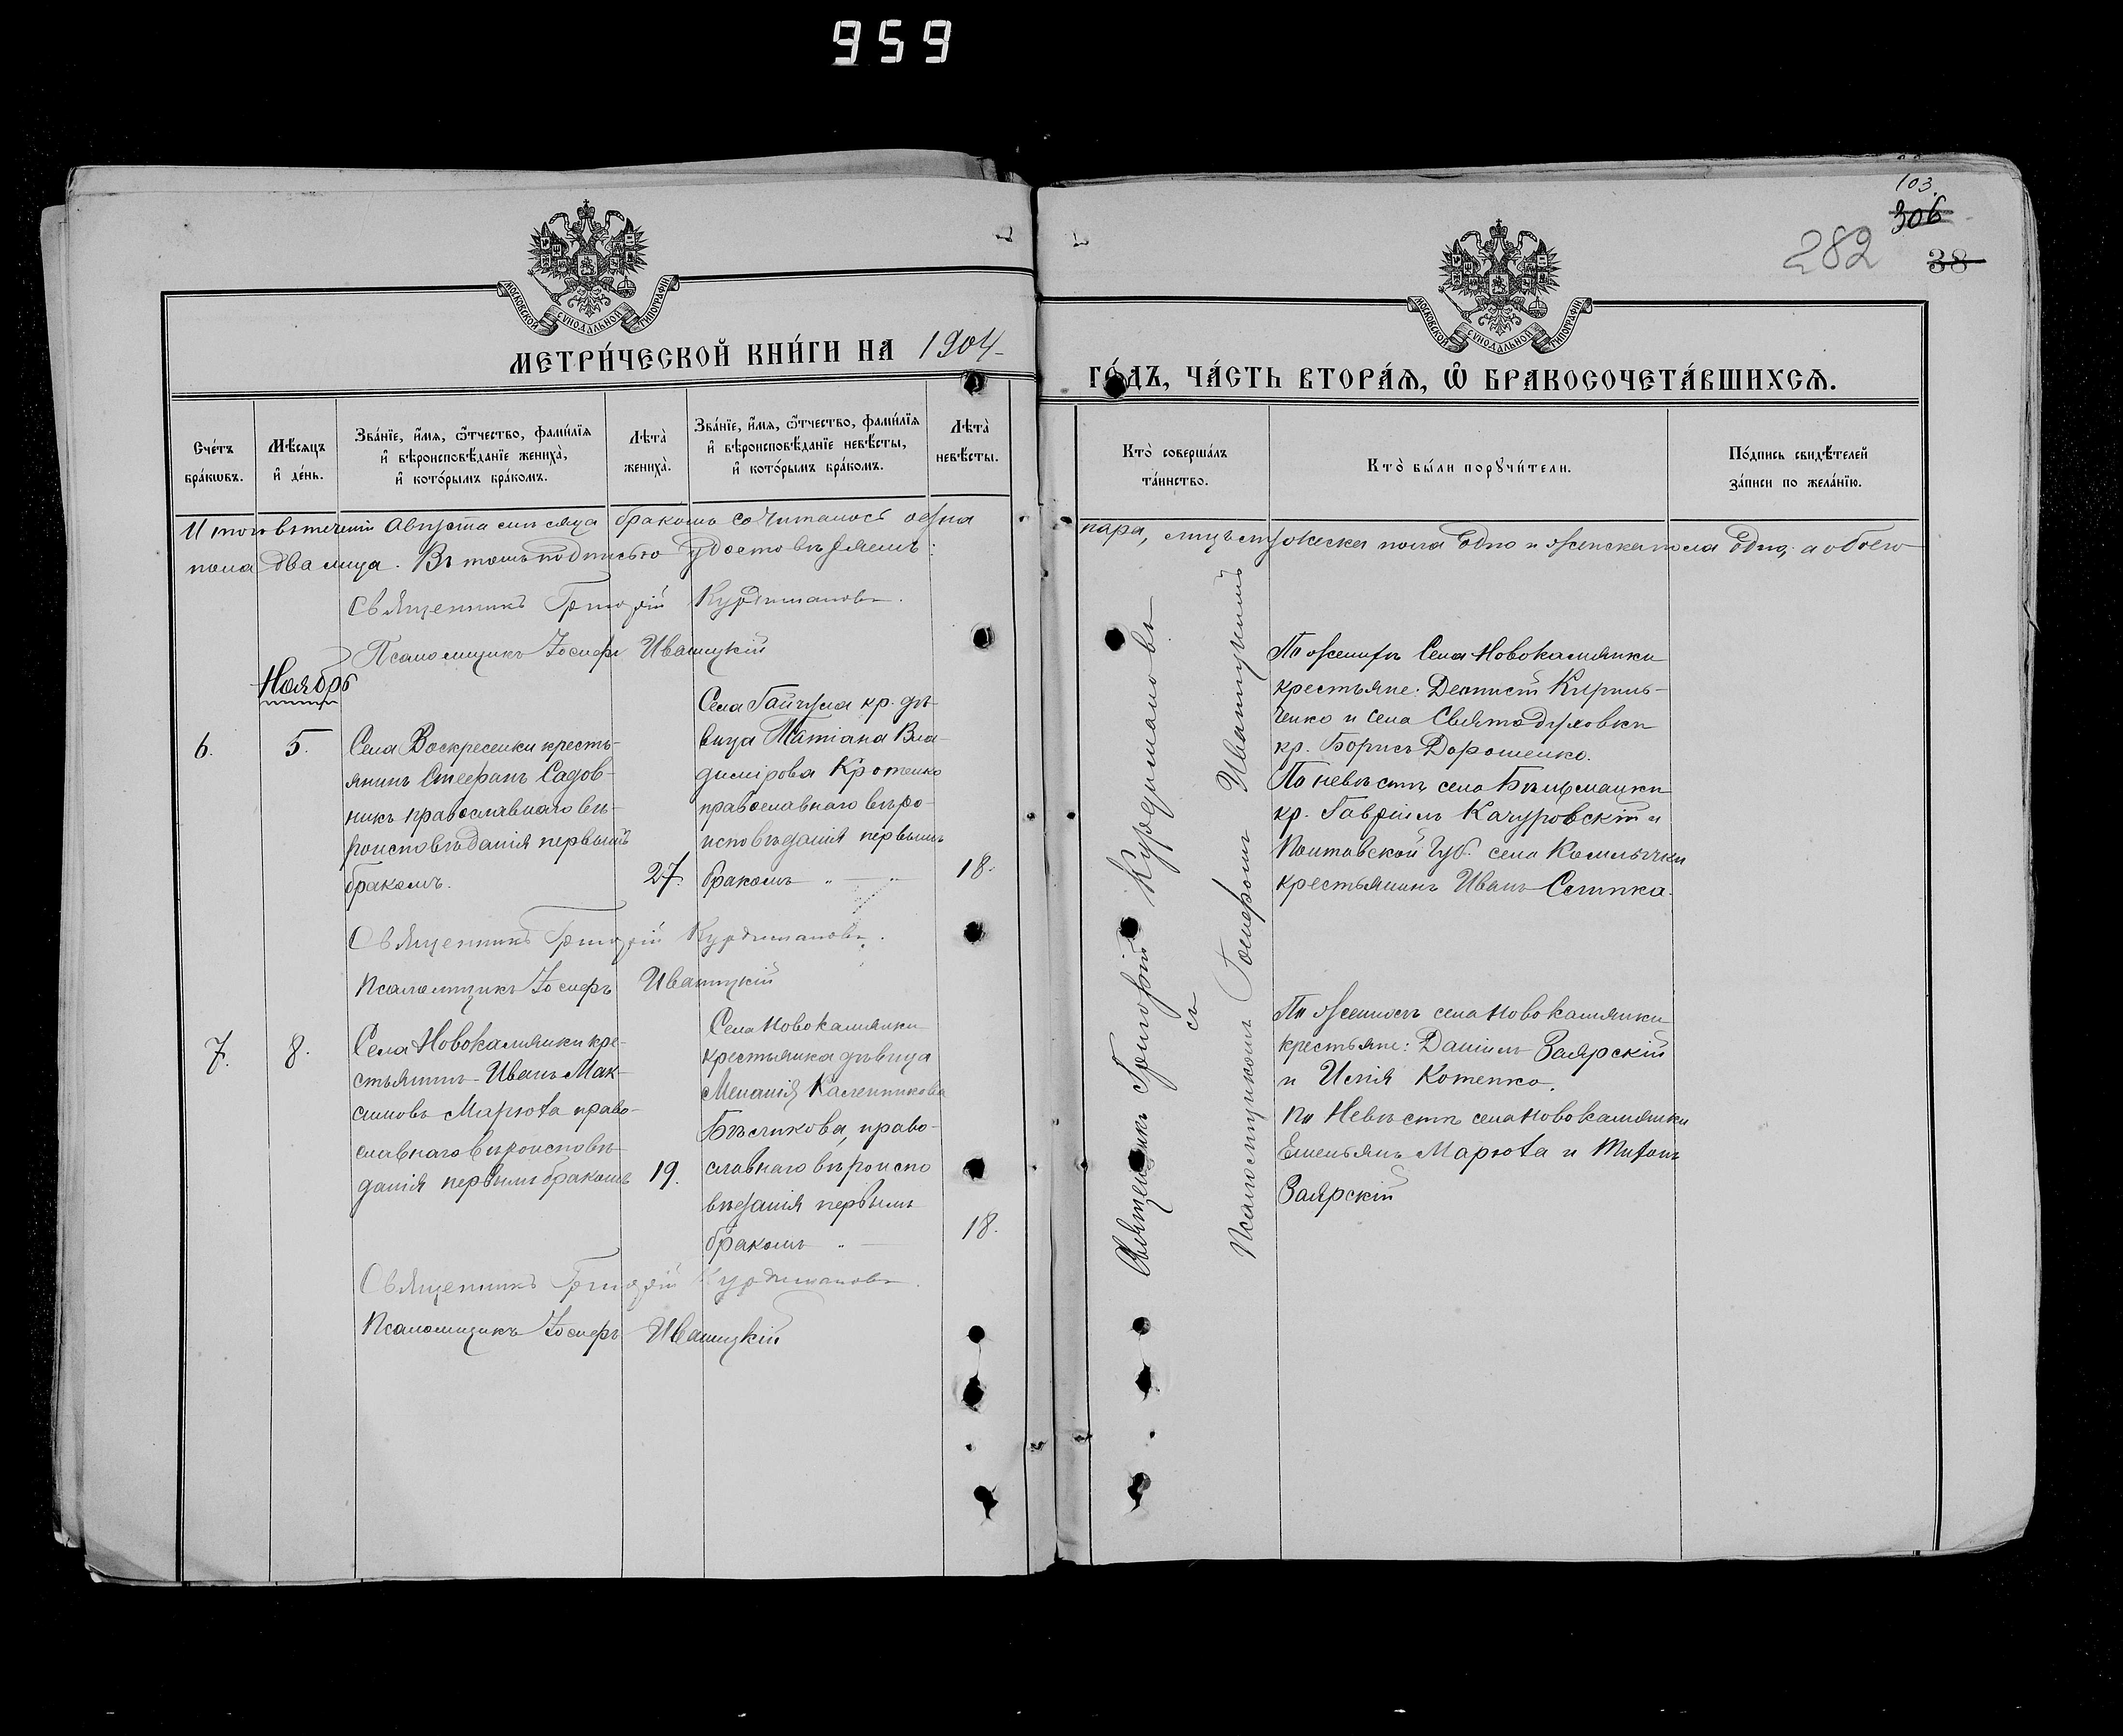 959
103.
306
282
38
МОСКОВСКОЙ СѴНОДАЛЬНОЙ ТИПОГРАФІИ
МОСКОВСКОЙ СѴНОДАЛЬНОЙ ТИПОГРАФІИ
МЕТРИ́ЧЕСКОЙ КНИ́ГИ НА 1904
ГО́ДЪ, ЧА́СТЬ ВТОРА́Ѧ, Ѽ БРАКОСОЧЕТА́ВШИХСѦ.
Сче́тъ бра́кѡвъ.
Мѣ́сѧцъ и҆ де́нь.
Зва́нїе, и҆́мѧ, ѻ҆́тчество, фами́лїѧ и҆ вѣроисповѣ́данїе жениха̀, и҆ кото́рымъ бра́комъ.
Лѣ́та̀ жениха̀.
Зва́нїе, и҆́мѧ, ѻ҆́тчество, фами́лїѧ и҆ вѣроисповѣ́данїе невѣ́сты, и҆ кото́рымъ бра́комъ.
Лѣ́та̀ невѣ́сты.
Кто̀ соверша́лъ та́инство.
Кто̀ бы́ли порꙋчи́тели.
По́дпись свидѣ́телей за́писи по жела́нїю.
Итого въ течении Августа мѣсяца бракомъ сочиталось одна
пара, лицъ мужеска пола одно и женска пола одно, а обоего
пола два лица. Въ томъ подписью удостовѣряемъ:
Священникъ Григорій Курдимановъ.
Псаломщикъ Іосифъ Ивашуцкій
Ноябрь
6.
5.
Села Воскресенки кресть-
янинъ Стефанъ Садов-
никъ православнаго вѣ-
роисповѣданія первымъ
бракомъ.
27.
Села Гайчула кр. дѣ-
вица Татіана Вла-
димірова Кротенко
православнаго вѣро-
исповѣданія первымъ
бракомъ
18.
Священникъ Григорій Курдимановъ
съ
Псаломщикомъ Іосифомъ Ивашуцкимъ
По женихѣ Села Новокамянки
крестьяне: Деонисій Кирил-
ченко и села Святодуховки
кр. Борисъ Дорошенко.
По невѣстѣ села Бѣльманки
кр. Гавріилъ Качуровскій и
Полтавской Губ. села
крестьянинъ Иванъ
Священникъ Григорій Курдимановъ.
Псаломщикъ Іосифъ Ивашуцкій
7.
8.
Села Новокамянки кре-
стьянинъ Иванъ Мак-
симовъ Марюта право-
славнаго вѣроисповѣ-
данія первымъ бракомъ
19.
Села Новокамянки
крестьянка дѣвица
Меланія Каленникова
Бѣликова, право-
славнаго вѣроиспо
вѣданія первымъ
бракомъ
18.
По женихѣ села Новокамянки
крестьяне: Даніилъ Заярскій
и Илія Котенко.
По Невѣстѣ села Новокамянки
Емельянъ Марюта и
Заярскій
Священникъ Григорій Курдимановъ.
Псаломщикъ Іосифъ Ивашуцкій